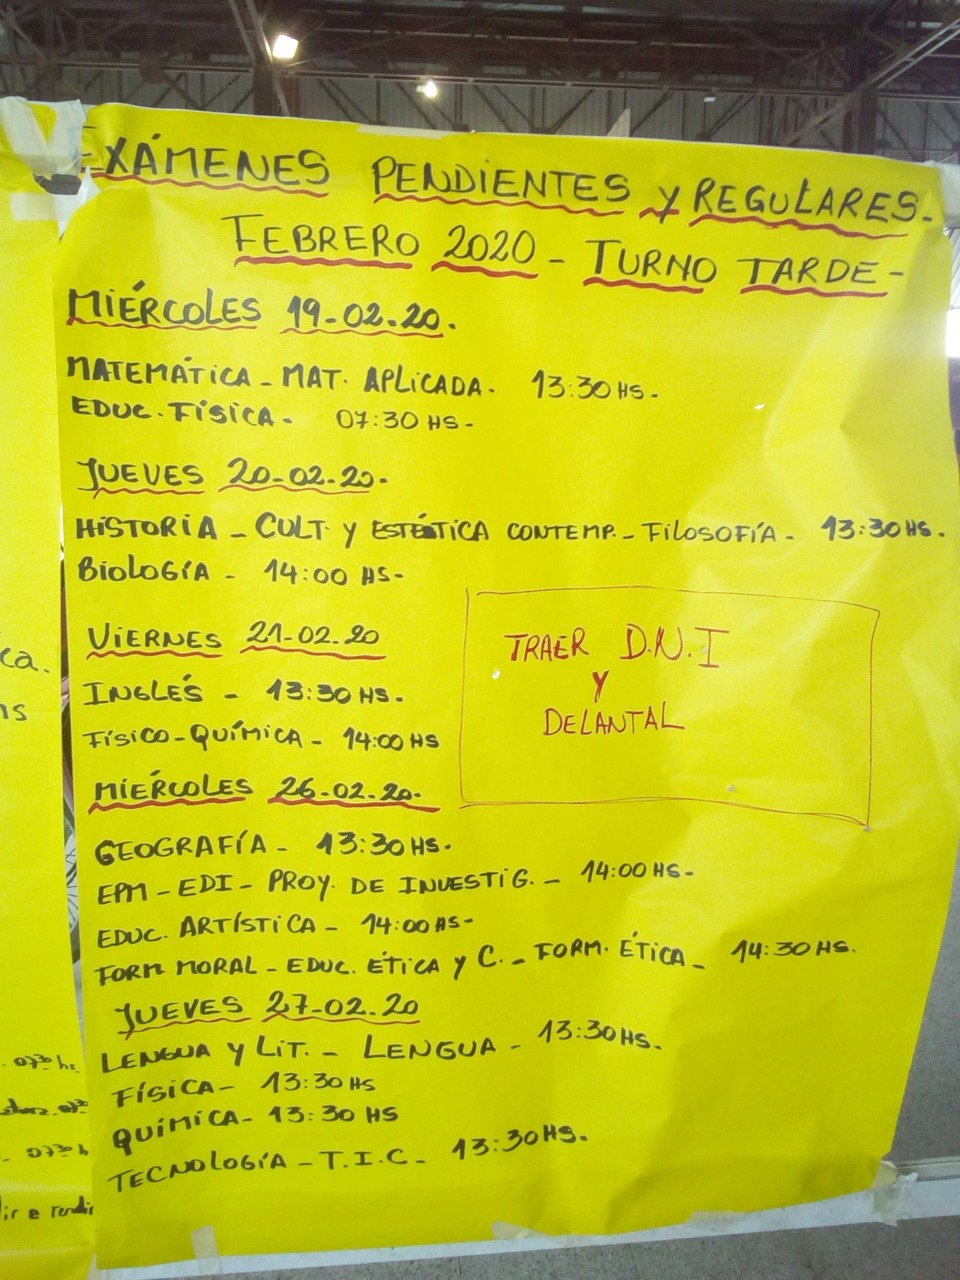 EXÁMENES PENDIENTES Y REGULARES.
FEBRERO 2020 - TURNO TARDE -
MIÉRCOLES 19-02-20.
MATEMÁTICA - MAT. APLICADA. 13:30 HS.
EDUC. FÍSICA - 07:30 HS -
JUEVES 20-02-20.
HISTORIA - CULT. Y ESTÉTICA CONTEMP. - FILOSOFÍA - 13:30 HS.
BIOLOGÍA - 14:00 HS -
VIERNES 21-02-20
INGLÉS - 13:30 HS.
FÍSICO-QUÍMICA - 14:00 HS
TRAER D.N.I
Y
DELANTAL
MIÉRCOLES 26-02-20.
GEOGRAFÍA - 13:30 HS.
EPM - EDI - PROY. DE INVESTIG. - 14:00 HS -
EDUC. ARTÍSTICA - 14:00 HS -
FORM. MORAL - EDUC. ÉTICA Y C. - FORM. ÉTICA - 14:30 HS.
JUEVES 27-02-20
LENGUA Y LIT. - LENGUA - 13:30 HS.
FÍSICA - 13:30 HS
QUÍMICA - 13:30 HS
TECNOLOGÍA - T.I.C - 13:30 HS.